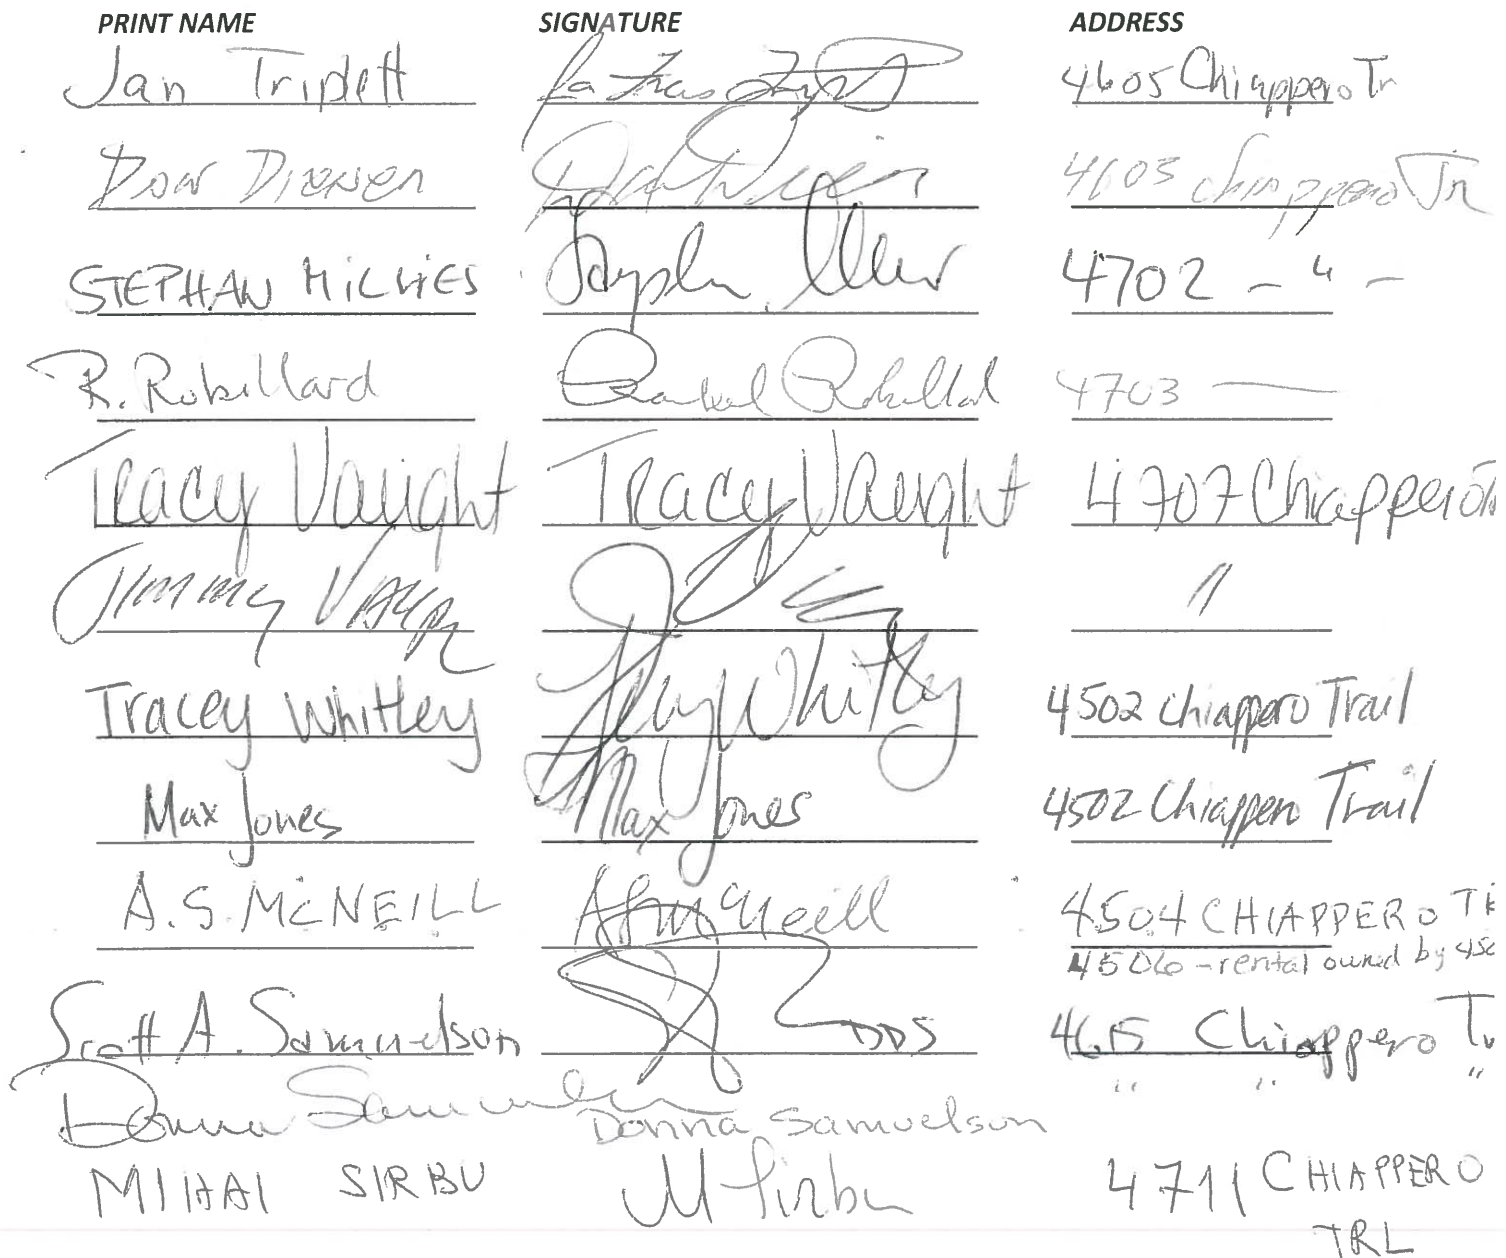 PRINT NAME SIGNATURE ADDRESS
Jan Triplett 4605 Chiappero Tr
Don Dienen 4605 Chiappero Tr
STEPHAN MILVIES 4702 - " -
R. Robillard Rachel Robillard 4703 —
Tracy Vaught Tracy Vaught 4707 Chiappero Tr
Jimmy "
Tracey Whitley Tracey Whitley 4502 Chiappero Trail
Max Jones Max Jones 4502 Chiappero Trail
A.S. McNEILL AS McNeill 4504 CHIAPPERO TR
4506 - rental owned by
Scott A. Samuelson DDS 4615 Chiappero Tr
Donna Samuelson Donna Samuelson " " "
MIHAI SIRBU M Sirbu 4711 CHIAPPERO
TRL